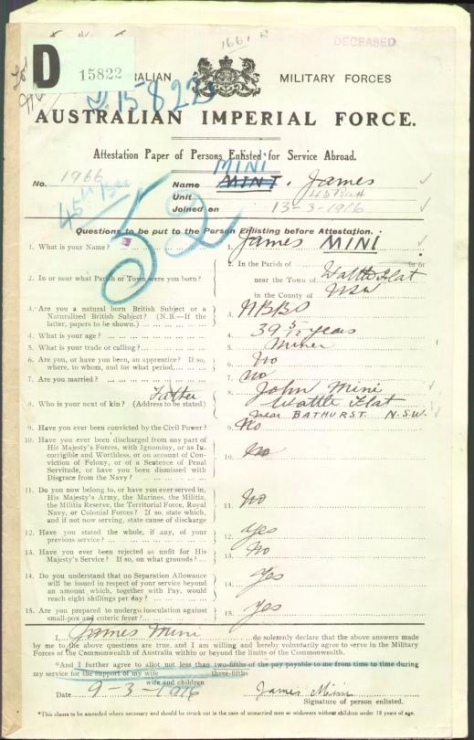 1661 B
DECEASED
D 15822
AUSTRALIAN MILITARY FORCES
15822
AUSTRALIAN IMPERIAL FORCE.
Attestation Paper of Persons Enlisted for Service Abroad.
MINI
No. 1966 Name MINT. James
Unit 45th Batt
45th Bn
Joined on 13-3-1916
52
Questions to be put to the Person Enlisting before Attestation.
1. What is your Name? 1. James MINI
2. In or near what Parish or Town were you born? 2. In the Parish of in or
near the Town of Wattle Flat
in the County of NSW
3. Are you a natural born British Subject or a 3. NBBS
Naturalized British Subject? (N.B.—If the
latter, papers to be shown.)
4. What is your age? 4. 39 years
5. What is your trade or calling? 5. Miner
6. Are you, or have you been, an apprentice? If so, 6. No
where, to whom, and for what period
7. Are you married? 7. No
Father
8. Who is your next of kin? (Address to be stated) 8. John Mini
Wattle Flat
near BATHURST. N.S.W.
9. Have you ever been convicted by the Civil Power? 9. No
10. Have you ever been discharged from any part of 10. No
His Majesty's Forces, with Ignominy, or as In-
corrigible and Worthless, or on account of Con-
viction of Felony, or of a Sentence of Penal
Servitude, or have you been dismissed with
Disgrace from the Navy?
11. Do you now belong to, or have you ever served in, 11. No
His Majesty's Army, the Marines, the Militia,
the Militia Reserve, the Territorial Force, Royal
Navy, or Colonial Forces? If so, state which,
and if not now serving, state cause of discharge
12. Have you stated the whole, if any, of your 12. Yes
previous service?
13. Have you ever been rejected as unfit for His 13. No
Majesty's Service? If so, on what grounds?
14. Do you understand that no Separation Allowance 14. Yes
will be issued in respect of your service beyond
an amount which, together with Pay, would
reach eight shillings per day?
15. Are you prepared to undergo inoculation against 15. Yes
small pox and enteric fever?
I, James Mini do solemnly declare that the above answers made
by me to the above questions are true, and I am willing and hereby voluntarily agree to serve in the Military
Forces of the Commonwealth of Australia within or beyond the limits of the Commonwealth.
*And I further agree to allot not less than two-fifths of the pay payable to me from time to time during
three-fifths
my service for the support of my wife
wife and children
Date 9-3-1916 James Mini
Signature of person enlisted.
*This clause to be amended where necessary and should be struck out in the case of unmarried men or widowers without children under 18 years of age.